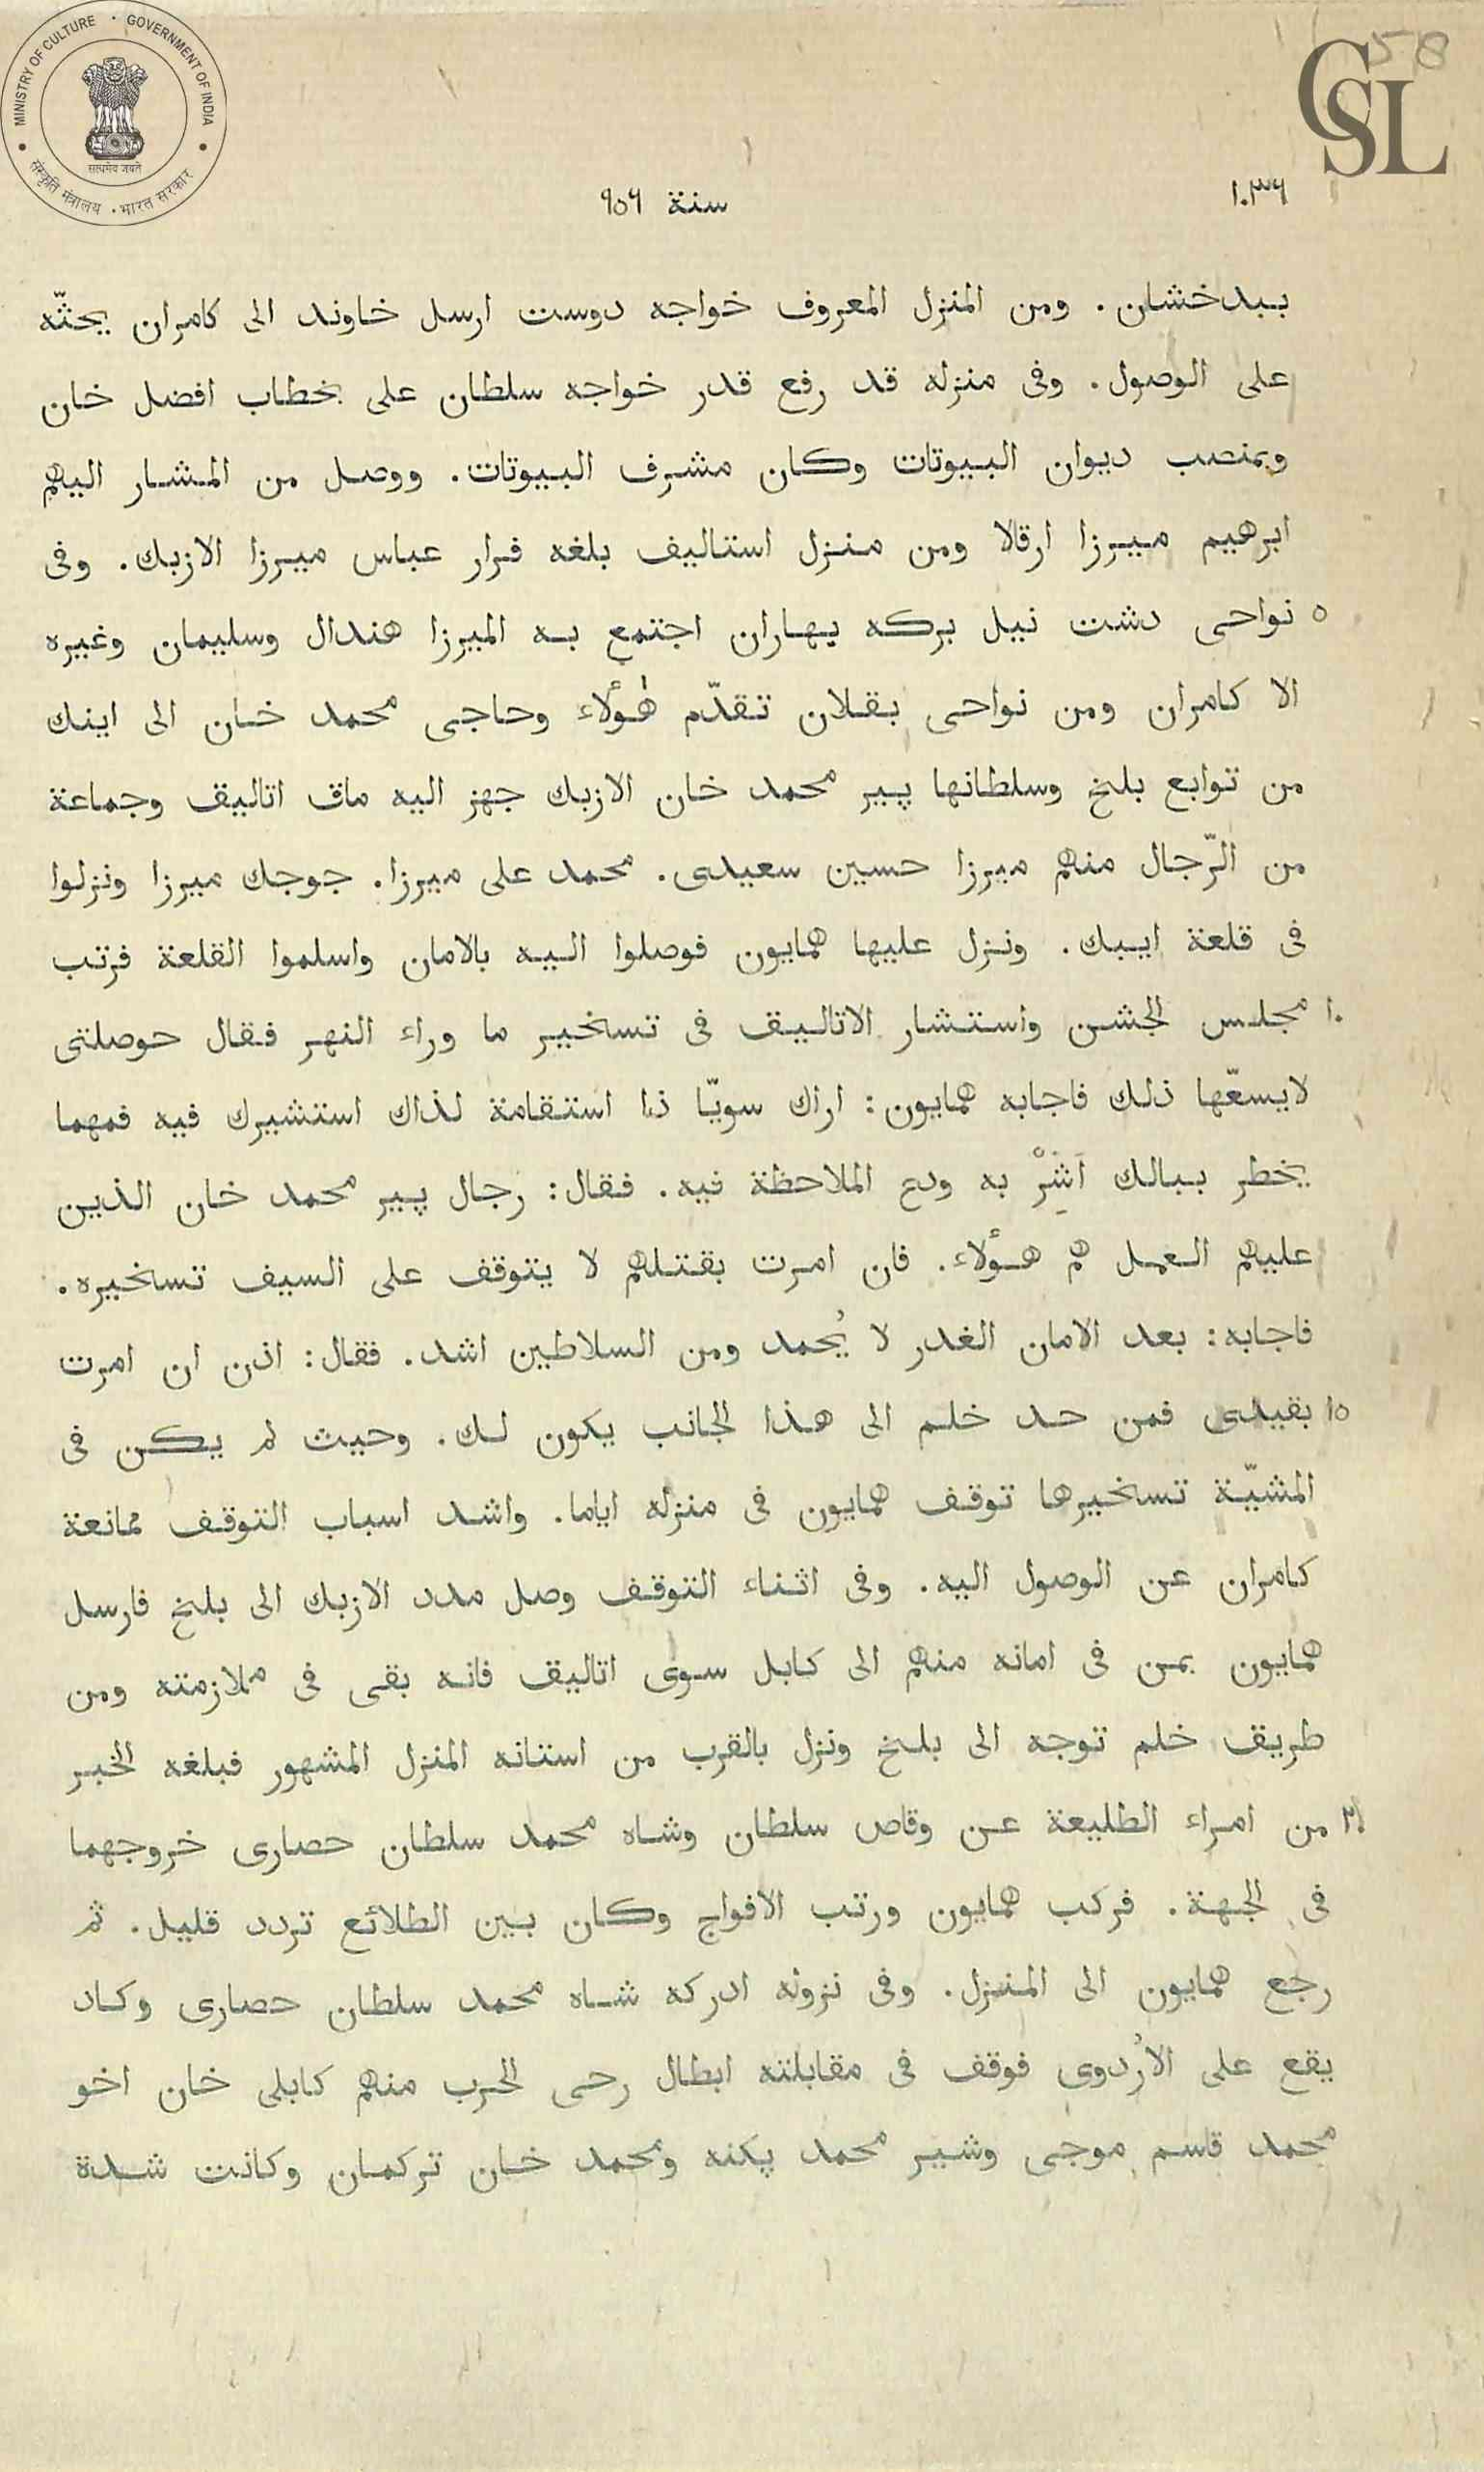 MINISTRY OF CULTURE · GOVERNMENT OF INDIA
सत्यमेव जयते
संस्कृति मंत्रालय · भारत सरकार
CSL
58
١٠٣٦
سنة ٩٥٦
ببدخشان. ومن المنزل المعروف خواجه دوست ارسل خاوند الى كامران يحثّه
على الوصول. وفى منزله قد رفع قدر خواجه سلطان على بخطاب افضل خان
وبمنصب ديوان البيوتات وكان مشرف البيوتات. ووصل من المشار اليهم
ابرهيم ميرزا ارقالا ومن منزل استاليف بلغه فرار عباس ميرزا الازبك. وفى
٥ نواحى دشت نيل بركه يهاران اجتمع به الميرزا هندال وسليمان وغيره
الا كامران ومن نواحى بقلان تقدّم هٰؤلاء وحاجى محمد خان الى اينك
من توابع بلخ وسلطانها پير محمد خان الازبك جهز اليه ماق اتاليق وجماعة
من الرّجال منهم ميرزا حسين سعيدى. محمد على ميرزا. جوجك ميرزا ونزلوا
فى قلعة ايبك. ونزل عليها همايون فوصلوا اليه بالامان واسلموا القلعة فرتب
١٠ مجلس الجشن واستشار الاتاليق فى تسخير ما وراء النهر فقال حوصلتى
لايسعّها ذلك فاجابه همايون: اراك سويّا ذا استقامة لذاك استشيرك فيه فمهما
يخطر ببالك اَشِرْ به ودع الملاحظة فيه. فقال: رجال پير محمد خان الذين
عليهم العمل هم هؤلاء. فان امرت بقتلهم لا يتوقف على السيف تسخيره.
فاجابه: بعد الامان الغدر لا يُحمد ومن السلاطين اشد. فقال: اذن ان امرت
١٥ بقيدى فمن حد خلم الى هذا الجانب يكون لك. وحيث لم يكن فى
المشيّة تسخيرها توقف همايون فى منزله اياما. واشد اسباب التوقف ممانعة
كامران عن الوصول اليه. وفى اثناء التوقف وصل مدد الازبك الى بلخ فارسل
همايون بمن فى امانه منهم الى كابل سوى اتاليق فانه بقى فى ملازمته ومن
طريق خلم توجه الى بلخ ونزل بالقرب من استانه المنزل المشهور فبلغه الخبر
٢٠ من امراء الطليعة عن وقاص سلطان وشاه محمد سلطان حصارى خروجهما
فى الجهة. فركب همايون ورتب الافواج وكان بين الطلائع تردد قليل. ثم
رجع همايون الى المنزل. وفى نزوله ادركه شاه محمد سلطان حصارى وكاد
يقع على الاُردوى فوقف فى مقابلته ابطال رحى الحرب منهم كابلى خان اخو
محمد قاسم موجى وشير محمد پكنه ومحمد خان تركمان وكانت شدة